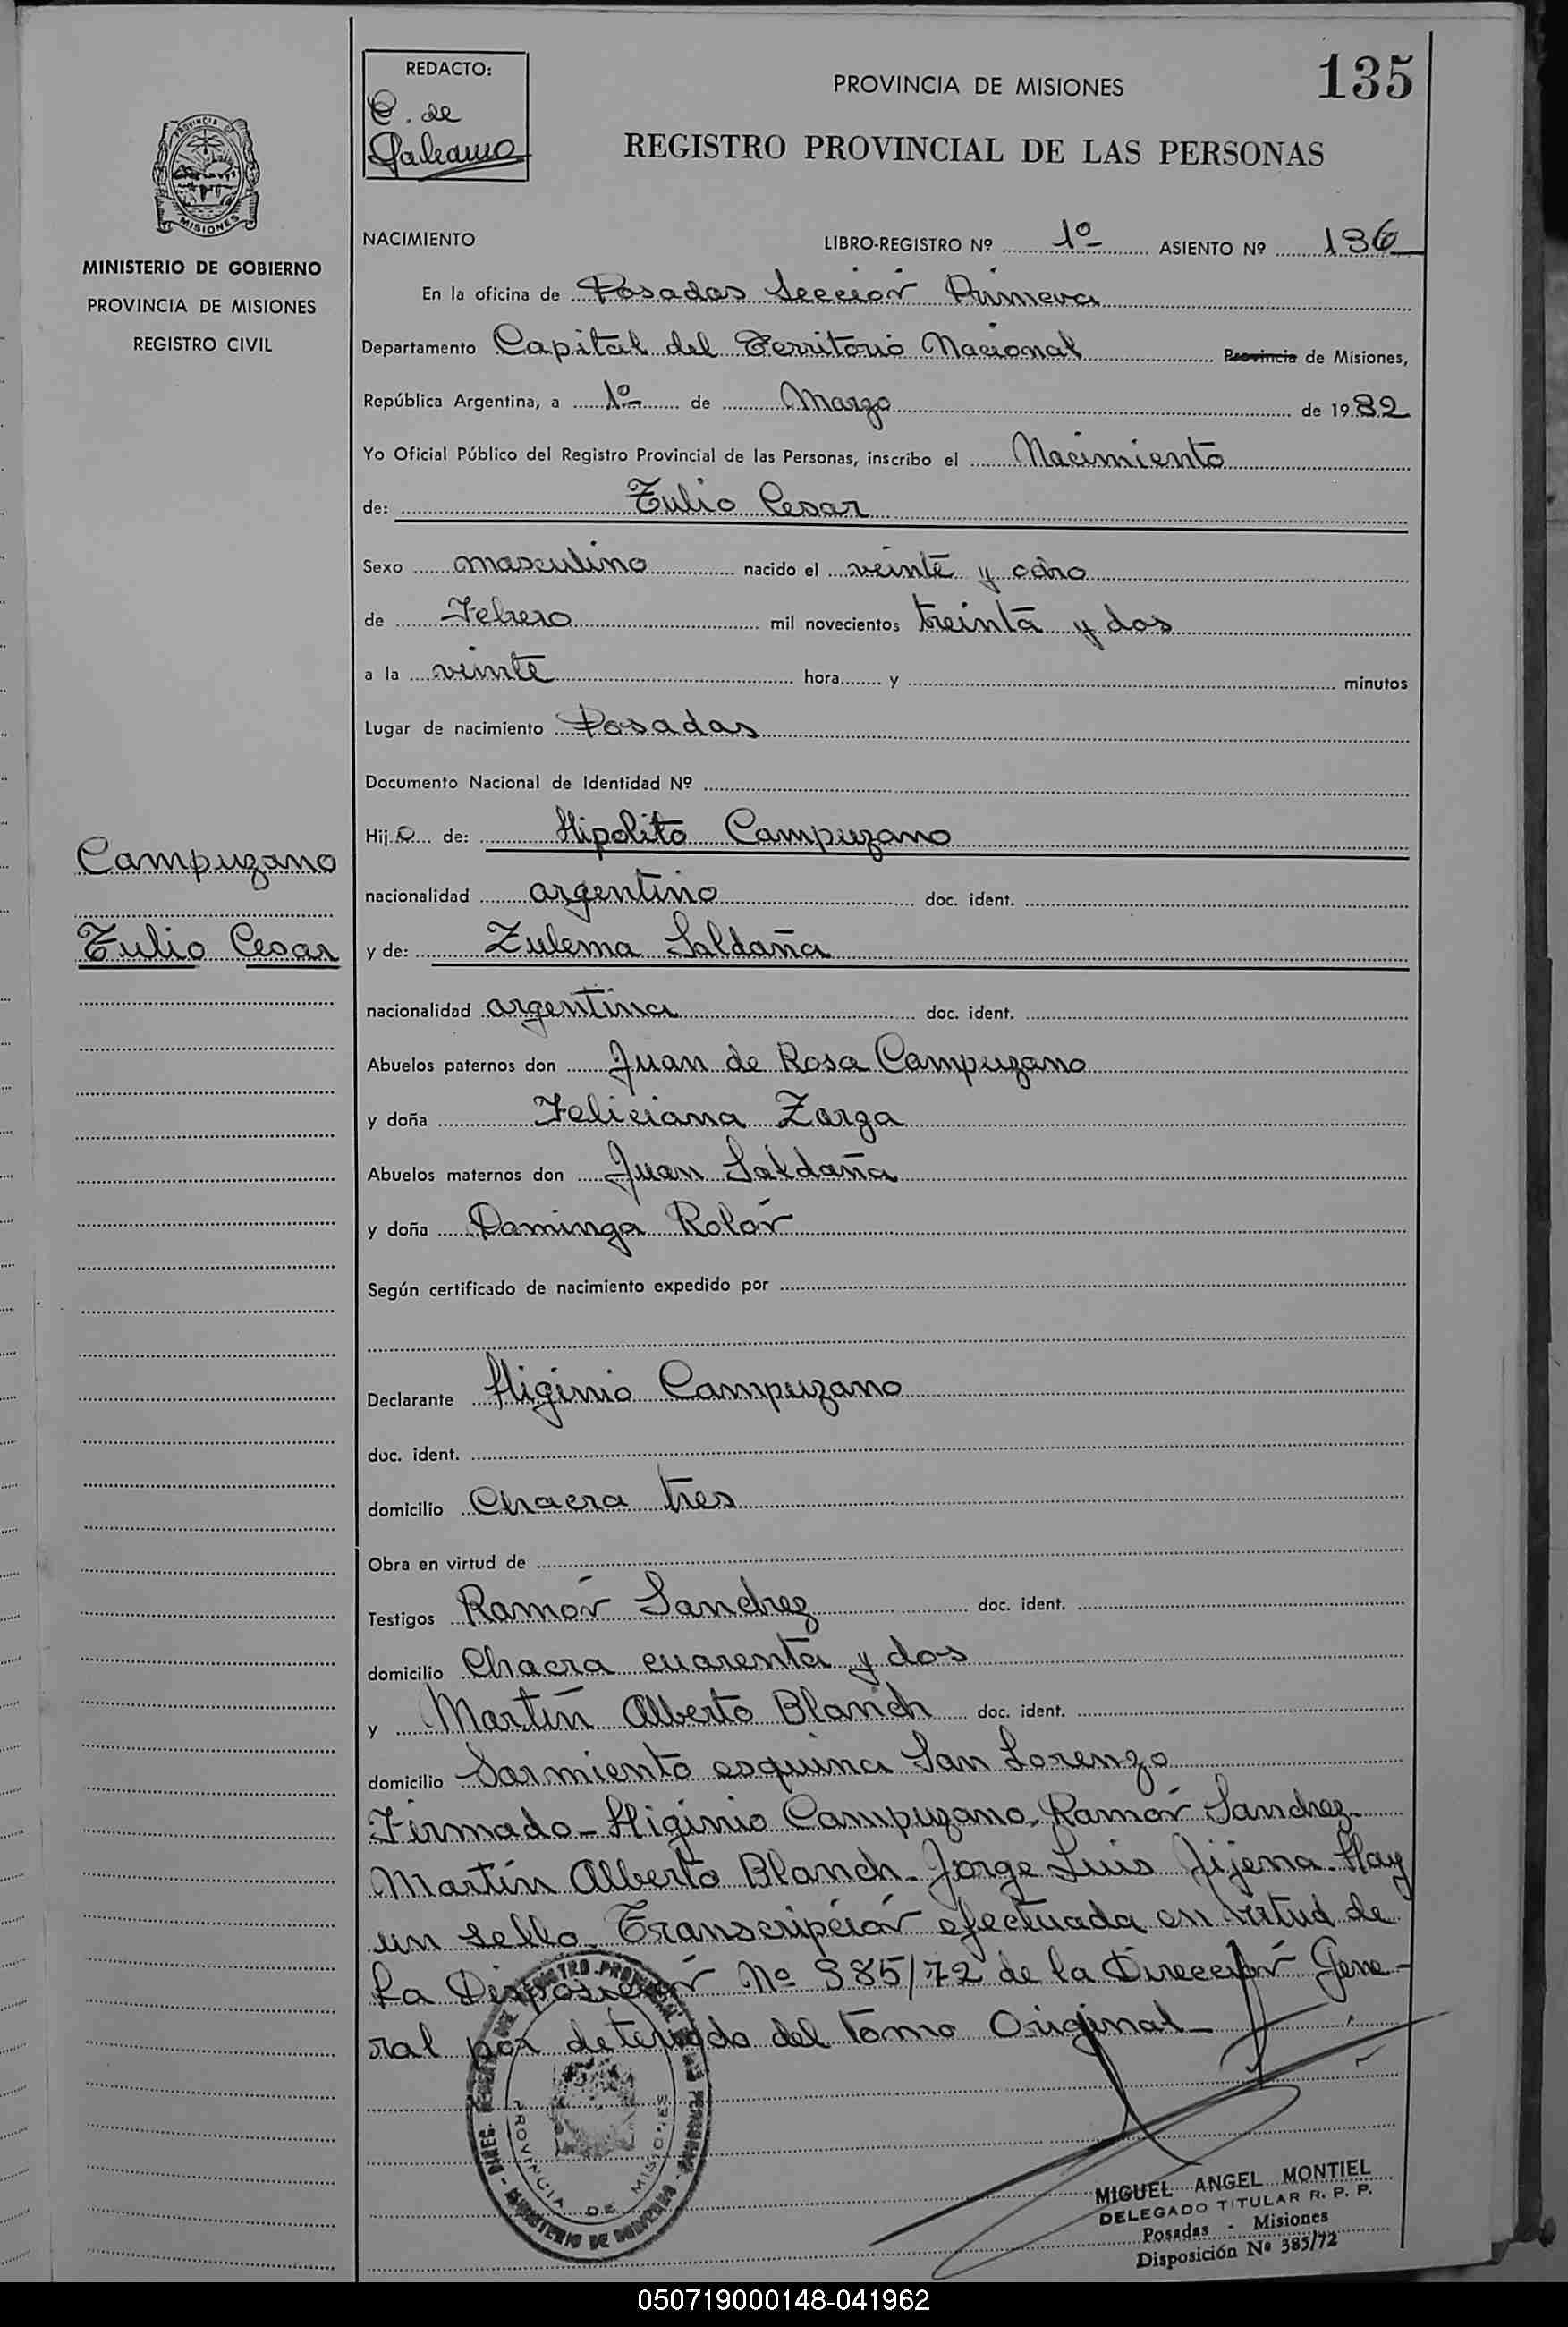 REDACTO:
C. de
Galeano
PROVINCIA DE MISIONES
135
REGISTRO PROVINCIAL DE LAS PERSONAS
PROVINCIA DE
MISIONES
MINISTERIO DE GOBIERNO
PROVINCIA DE MISIONES
REGISTRO CIVIL
NACIMIENTO LIBRO-REGISTRO Nº 1º ASIENTO Nº 136
En la oficina de Posadas Sección Primera
Departamento Capital del Territorio Nacional Provincia de Misiones,
República Argentina, a 1º de Marzo de 1932
Yo Oficial Público del Registro Provincial de las Personas, inscribo el Nacimiento
de: Tulio Cesar
Sexo masculino nacido el veinte y ocho
de Febrero mil novecientos treinta y dos
a la veinte hora y minutos
Lugar de nacimiento Posadas
Documento Nacional de Identidad Nº
Hijo de: Hipolito Campuzano
Campuzano
nacionalidad argentino doc. ident.
Tulio Cesar
y de: Zulema Saldaña
nacionalidad argentina doc. ident.
Abuelos paternos don Juan de Rosa Campuzano
y doña Feliciana Zarza
Abuelos maternos don Juan Saldaña
y doña Dominga Rolón
Según certificado de nacimiento expedido por
Declarante Higinio Campuzano
doc. ident.
domicilio Chacra tres
Obra en virtud de
Testigos Ramón Sanchez doc. ident.
domicilio Chacra cuarenta y dos
y Martín Alberto Blanch doc. ident.
domicilio Sarmiento esquina San Lorenzo
Firmado - Higinio Campuzano. Ramón Sanchez-
Martín Alberto Blanch - Jorge Luis Jijena - Hay
un sello. Transcripción efectuada en virtud de
la Disposición Nº 385/72 de la Dirección Gene-
ral por deteriodo del tomo Original-
PROVINCIA DE MISIONES
MIGUEL ANGEL MONTIEL
DELEGADO TITULAR R. P. P.
Posadas - Misiones
Disposición Nº 385/72
050719000148-041962